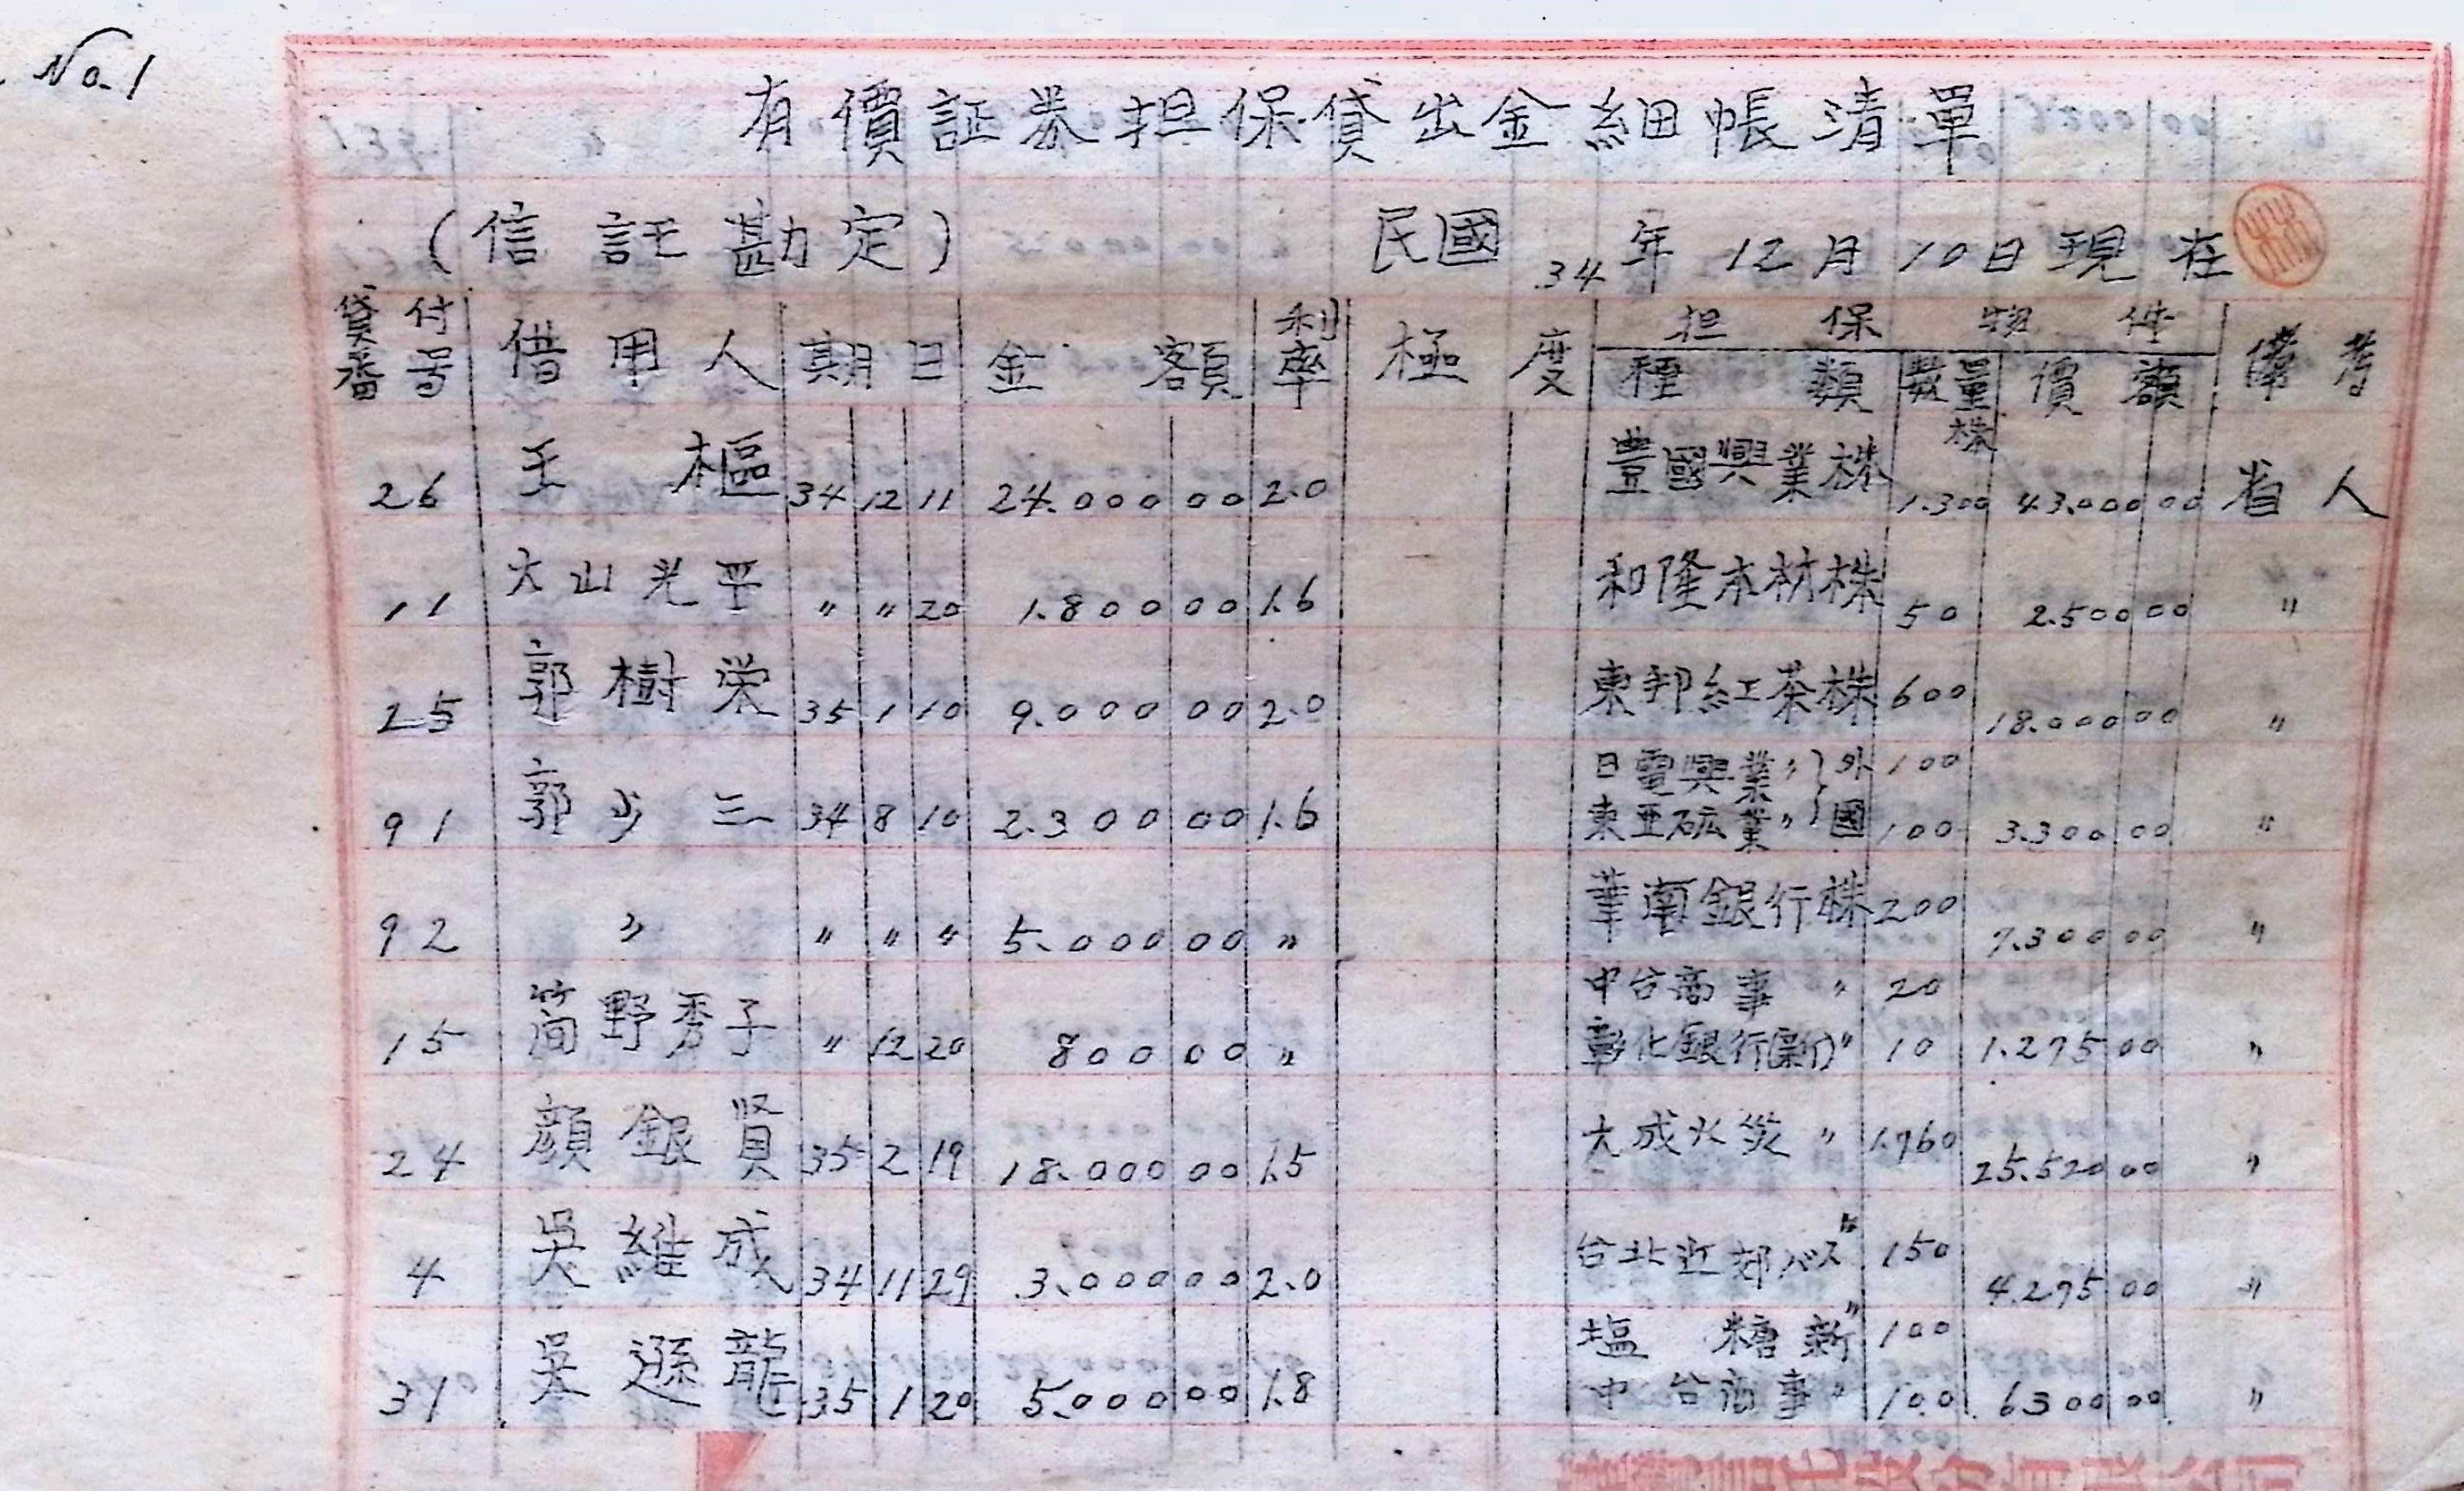 No.1
有價証券担保貸出金細帳清單
(信託勘定) 民國34年12月10日現在
貸付番号 借用人 期日 金額 利率 極度 担保物件 種類 数量 價額 備考
株
26 王樞 34 12 11 24.000 00 2.0 豊國興業株 1.300 43.000 00 省人
11 大山光平 〃 〃 20 1.800 00 1.6 和隆木材株 50 2.500 00 〃
25 郭樹栄 35 1 10 9.000 00 2.0 東邦紅茶株 600 18.000 00 〃
日電興業〃 外 100
91 郭少三 34 8 10 2.300 00 1.6 東亜砿業〃 國 100 3.300 00 〃
92 〃 〃 〃 〃 5.000 00 〃 華南銀行株 200 7.300 00 〃
中台商事 〃 20
15 簡野秀子 〃 12 20 800 00 〃 彰化銀行(新)〃 10 1.275 00 〃
24 顔銀賢 35 2 19 18.000 00 1.5 大成火災 〃 1.760 25.520 00 〃
4 吳維成 34 11 29 3.000 00 2.0 台北近郊バス〃 150 4.275 00 〃
塩糖新〃 100
31 吳遜龍 35 1 20 5.000 00 1.8 中台商事〃 100 6300 00 〃